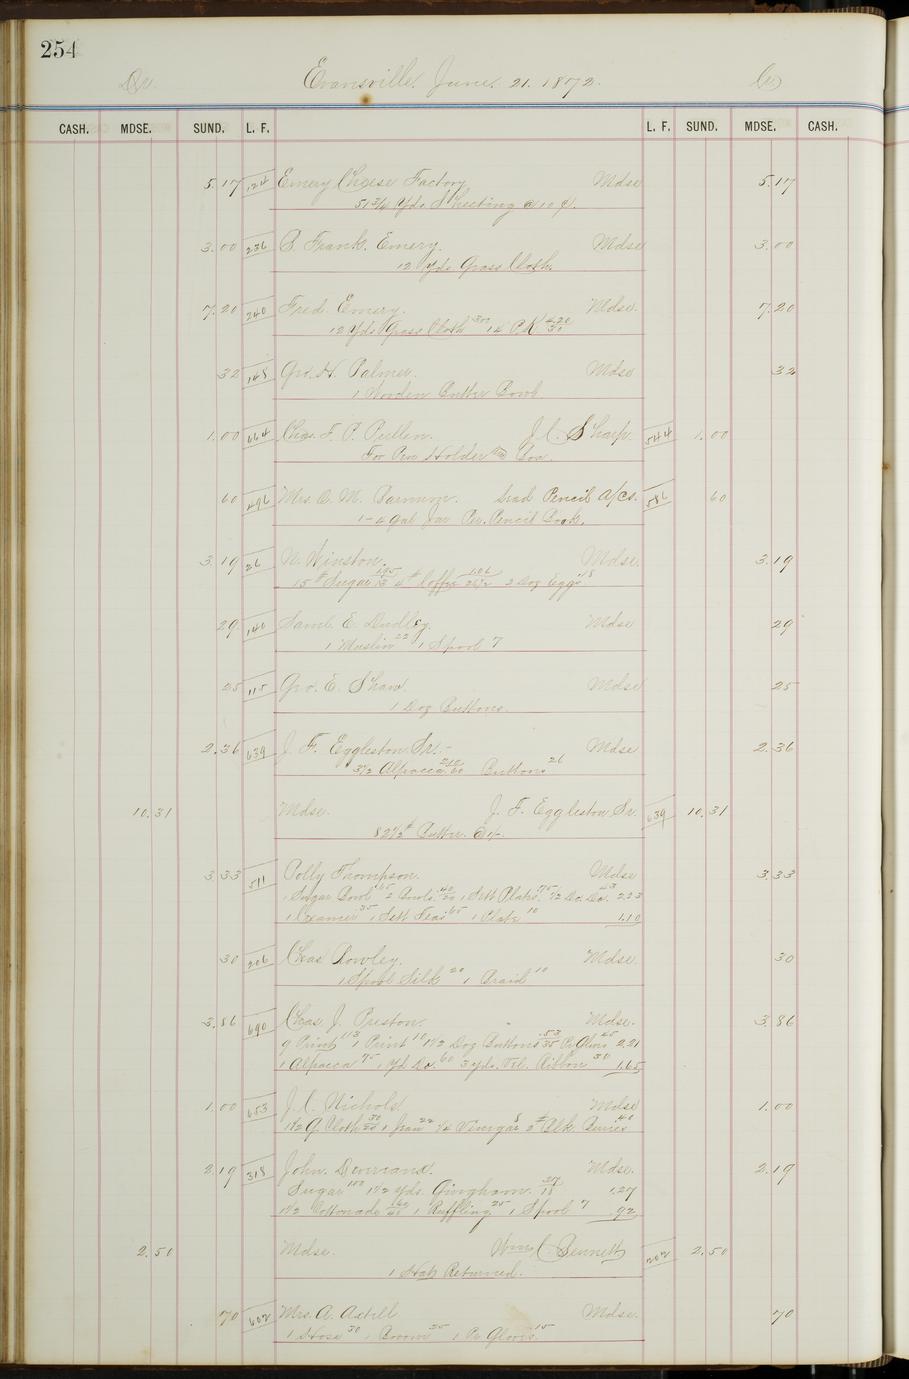 254
Dr. Evansville, June. 21. 1872. Cr
CASH. MDSE. SUND. L. F. L. F. SUND. MDSE. CASH.
5.17 124 Emery Cheese Factory Mdse 5.17
51 3/4 Yds. Sheeting @ 10 ¢.
3.00 236 S. Frank. Emery. Mdse 3.00
12 Yds Grass Cloth.
7.20 240 Fred. Emery. Mdse. 7.20
12 Yds Grass Cloth 3.00 14 PK 4.20/30
32 148 Geo. H. Palmer. Mdse 32
1 Wooden Butter Bowl
1.00 664 Chas. F. P. Pullen. J. C. Sharp. 544 1.00
For Pen Holder Box.
60 496 Mrs. O. M. Lead Pencil a/cs. 586 60
1-4 Gal Jar Per. Pencil Book.
3.19 26 N. Winston. Mdse. 3.19
15 # Sugar 1.95/13 4 # Coffee 1.06/26 1/2 2 Doz Eggs 18
29 140 Saml. E. Dudley. Mdse 29
1 Muslin 22 1 Spool 7
25 115 Geo. E. Shaw. Mdse 25
1 Doz Buttons.
2.36 639 J. F. Eggleston Sr. - Mdse 2.36
3 1/2 Alpacca 2.10/60 Buttons 26
10.31 Mdse. J. F. Eggleston Sr. 639 10.31
82 1/2 # Butter.
3.33 511 Polly Thompson. Mdse 3.33
1 Sugar Bowl 65 2 Bowls 40/20 1 Sett Plates 75 1/2 Do. Do. 43 2.23
1 Creamer 35 1 Sett Teas 65 1 Plate 10 1.10
30 206 Chas Dowley. Mdse. 30
1 Spool Silk 20 1 Braid 10
3.86 690 Chas. J. Preston. Mdse. 3.86
9 Print 1.13 1 Print 10 1 1/2 Doz Buttons 53/35 Pr Gloves 45 2.21
1 Alpacca 75 1 Yd Do. 60 3 yds. Vel. Ribbon 30 1.65
1.00 653 J. C. Nichols Mdse 1.00
1 1/2 G. Cloth 30/20 1 Jean 22 1/4 Vinegar 8 2 # Blk. Berries 40
2.19 318 John. Mdse. 2.19
Sugar 1.00 1 1/2 Yds. Gingham. 27/18 1.27
1 1/2 Cottonade 60/40 1 Ruffling 25 1 Spool 7 .92
2.50 Mdse. Wm. C. Bennett 202 2.50
1 Hat Returned.
70 602 Mrs. A. Axtell Mdse. 70
1 Hose 30 1 Broom 25 1 Pr Gloves. 15